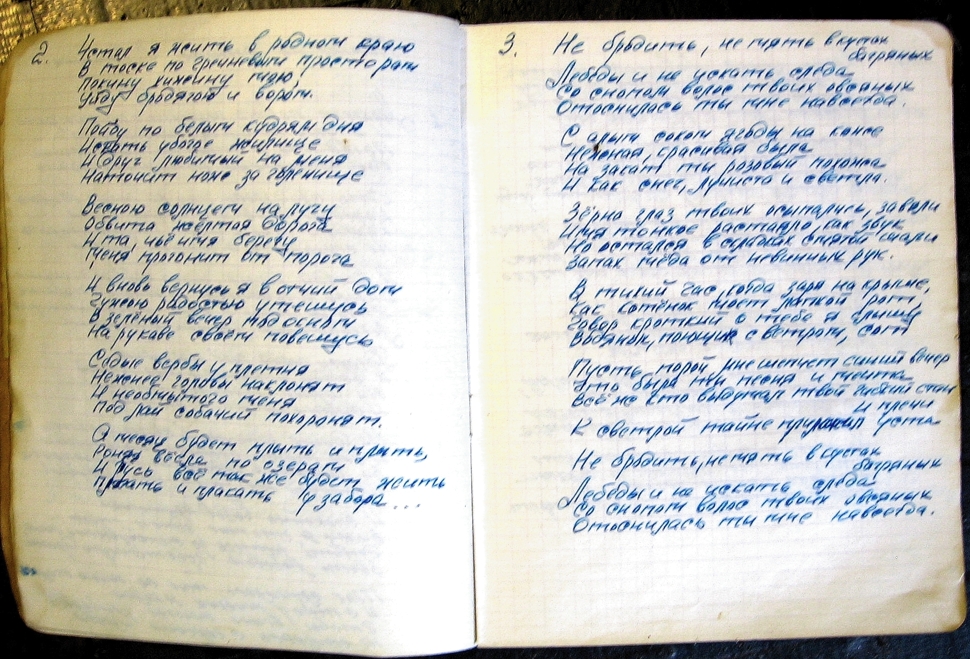 2. Устал я жить в родном краю
В тоске по гречневым просторам
Покину хижину мою,
Уйду бродягою и вором.
Пойду по белым кудрям дня
Искать убогое жилище
И друг любимый на меня
Наточит нож за голенище
Весною солнцем на лугу
Обвита жёлтая дорога
И та, чьё имя берегу
Меня прогонит от порога
И вновь вернусь я в отчий дом
Чужою радостью утешусь
В зелёный вечер под окном
На рукаве своём повешусь
Седые вербы у плетня
Нежнее головы наклонят
И необмытого меня
Под лай собачий похоронят.
А месяц будет плыть и плыть,
Роняя вёсла по озерам
И Русь всё так же будет жить
Плясать и плакать у забора...
3. Не бродить, не мять в кустах
багряных
Лебеды и не искать следа
Со снопом волос твоих овсяных
Отоснилась ты мне навсегда.
С алым соком ягоды на коже
Нежная, красивая была
На закат ты розовый похожа
И как снег, лучиста и светла.
Зёрна глаз твоих осыпались, завяли
Имя тонкое растаяло, как звук
Но остался в складках смятой шали
Запах мёда от невинных рук.
В тихий час, когда заря на крыше,
Как котёнок моет лапкой рот,
Говор кроткий о тебе я слышу
Водяных, поющих с ветром, сот
Пусть порой мне шепчет синий вечер
Что была ты песня и мечта
Всё ж кто выдумал твой гибкий стан
и плечи
К светлой тайне приложил уста
Не бродить, не мять в кустах
багряных
Лебеды и не искать следа
Со снопом волос твоих овсяных
Отоснилась ты мне навсегда.